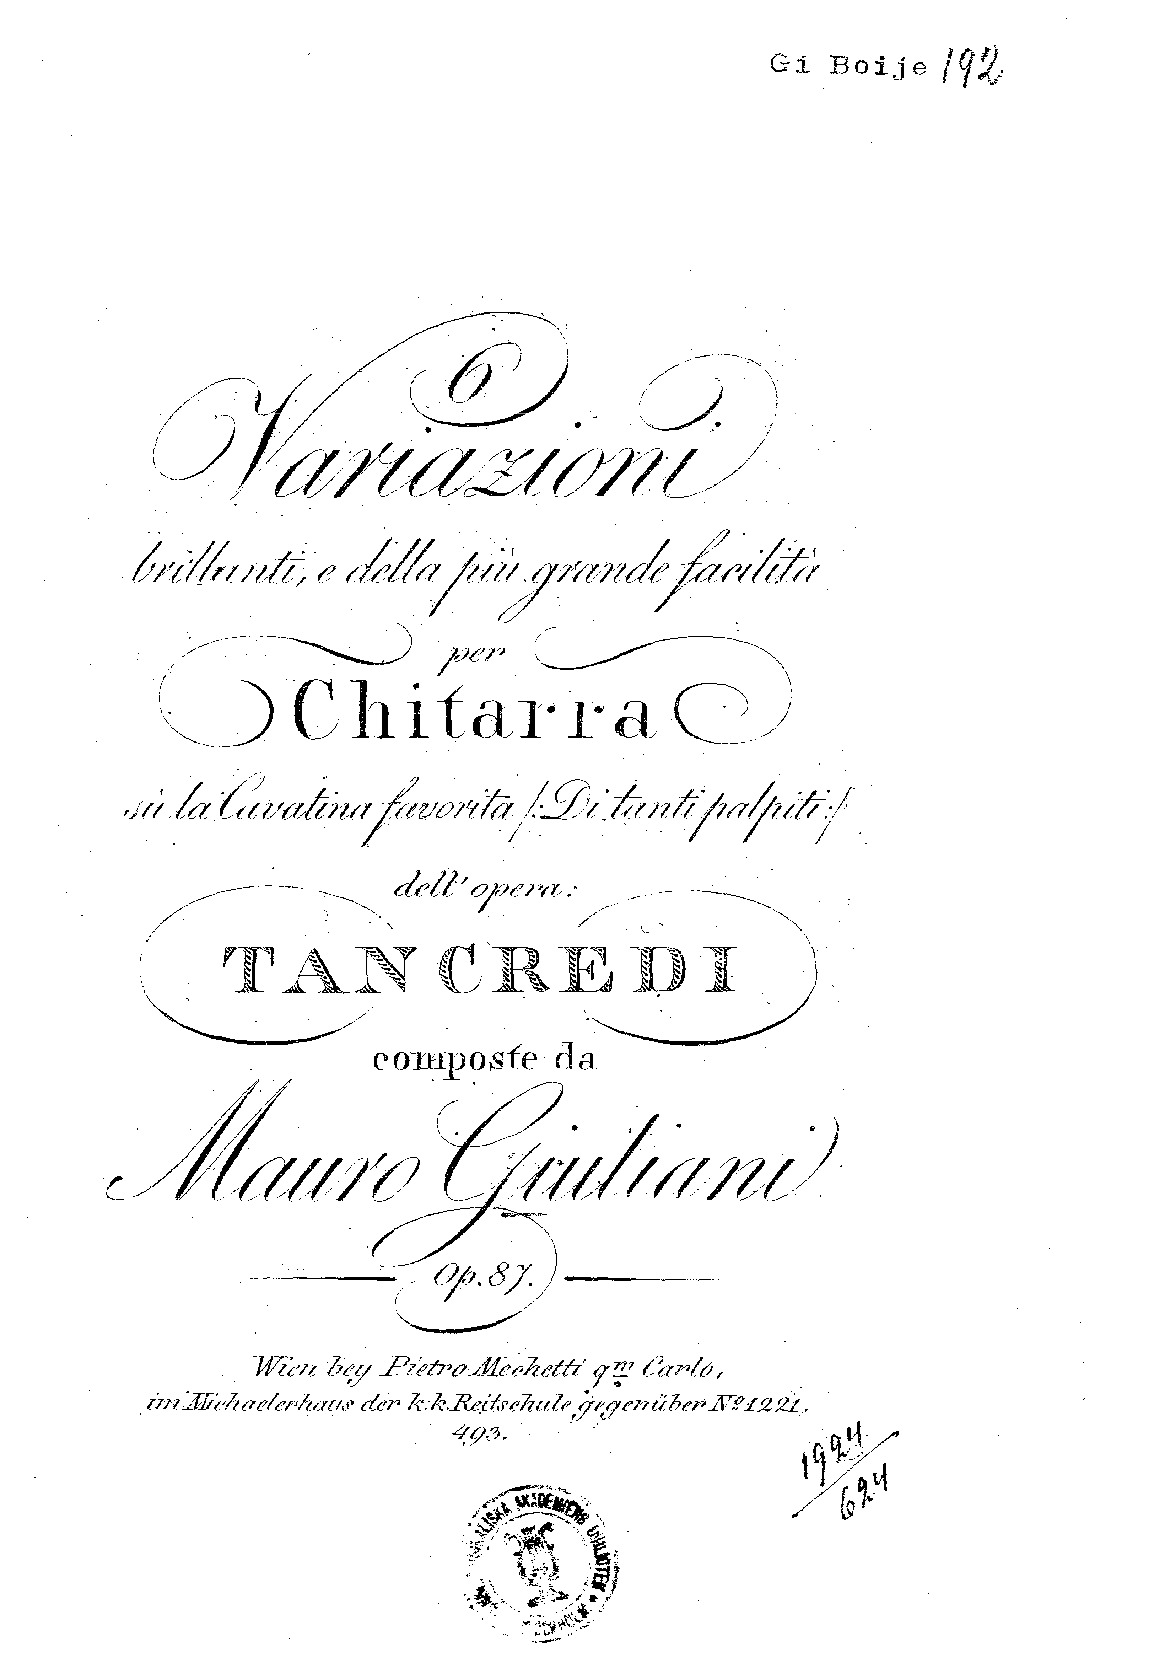 Gi Boije 192
6
Variazioni
brillanti, e della più grande facilità
per
Chitarra
sù la Cavatina favorita /:Di tanti palpiti:/
dell' opera:
TANCREDI
composte da
Mauro Giuliani
Op. 87.
Wien bey Pietro Mechetti qm Carlo,
im Michaelerhaus der k.k. Reitschule gegenüber No 1221.
493.
1924/624
AKADEMIENS BIBLIOTEK